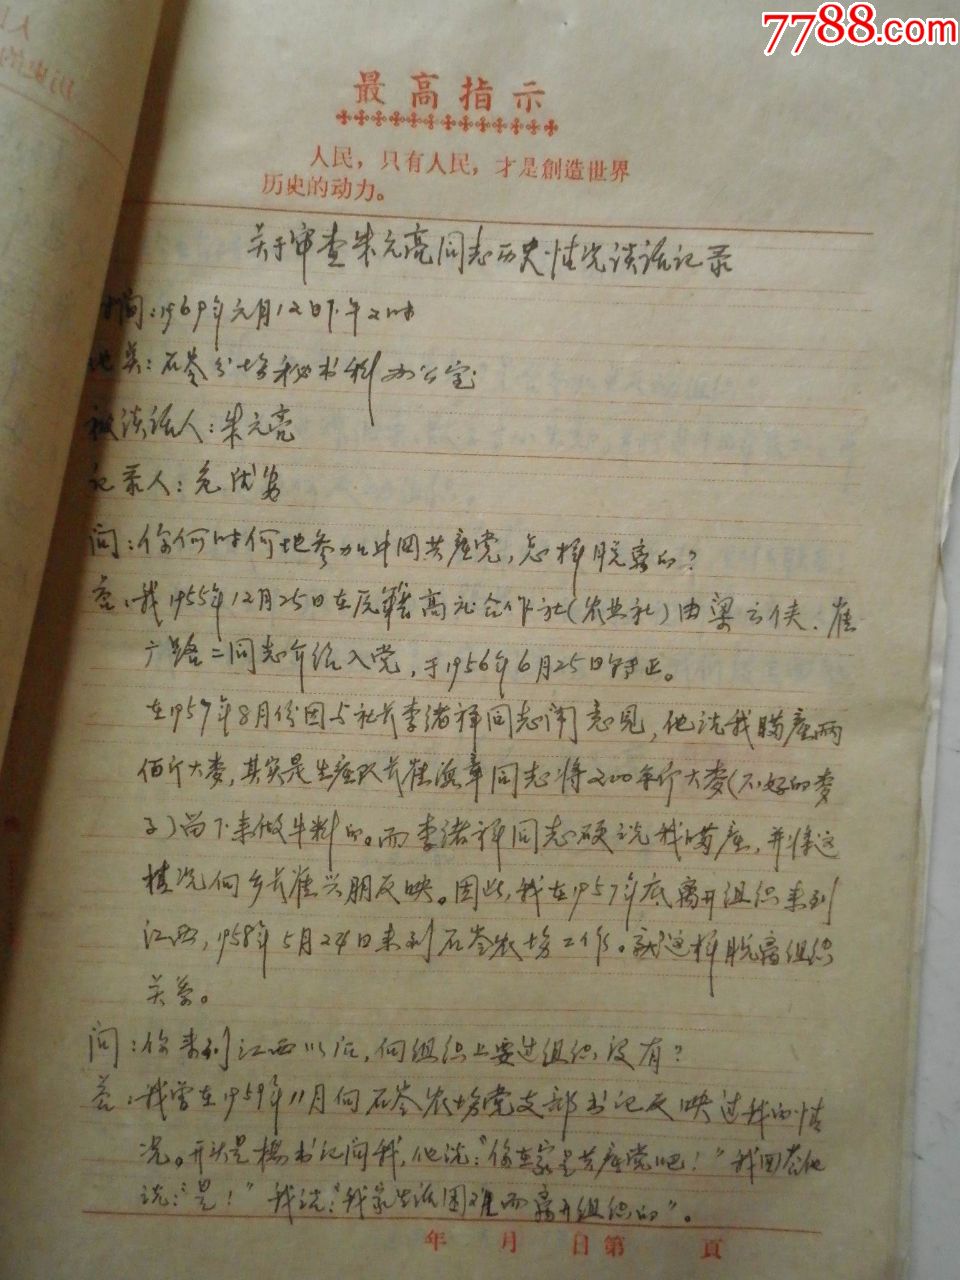 7788.com
最高指示
人民，只有人民，才是創造世界
历史的动力。
关于审查朱元亮同志历史情况谈话记录
时间：1969年元月12日下午2时
地点：石岺分场秘书科办公室
被谈话人：朱元亮
记录人：
问：你何时何地参加中国共产党，怎样脱离的？
答：我1955年12月25日在 高元合作社（农业社）由梁云侠、崔
广路二同志介绍入党，于1956年6月25日转正。
在1957年8月份因与社长李绪祥同志闹意见，他说我瞒产两
佰斤大麦，其实是生产队长崔 章同志将200来斤大麦（不好的麦
子）留下来做牛料的。而李绪祥同志硬说我瞒产，并将这
情况向乡长崔兴朋反映。因此，我在1957年底离开组织来到
江西，1958年5月24日来到石岺农场工作。就这样脱离组织
关系。
问：你来到江西以后，向组织上要过组织没有？
答：我曾在1959年11月向石岺农场党支部书记反映过我的情
况。开头是杨书记问我，他说：“你在家是共产党吧！”我回答他
说：“是！”我说：“我家生活困难而离开组织的”。
年 月 日第 頁